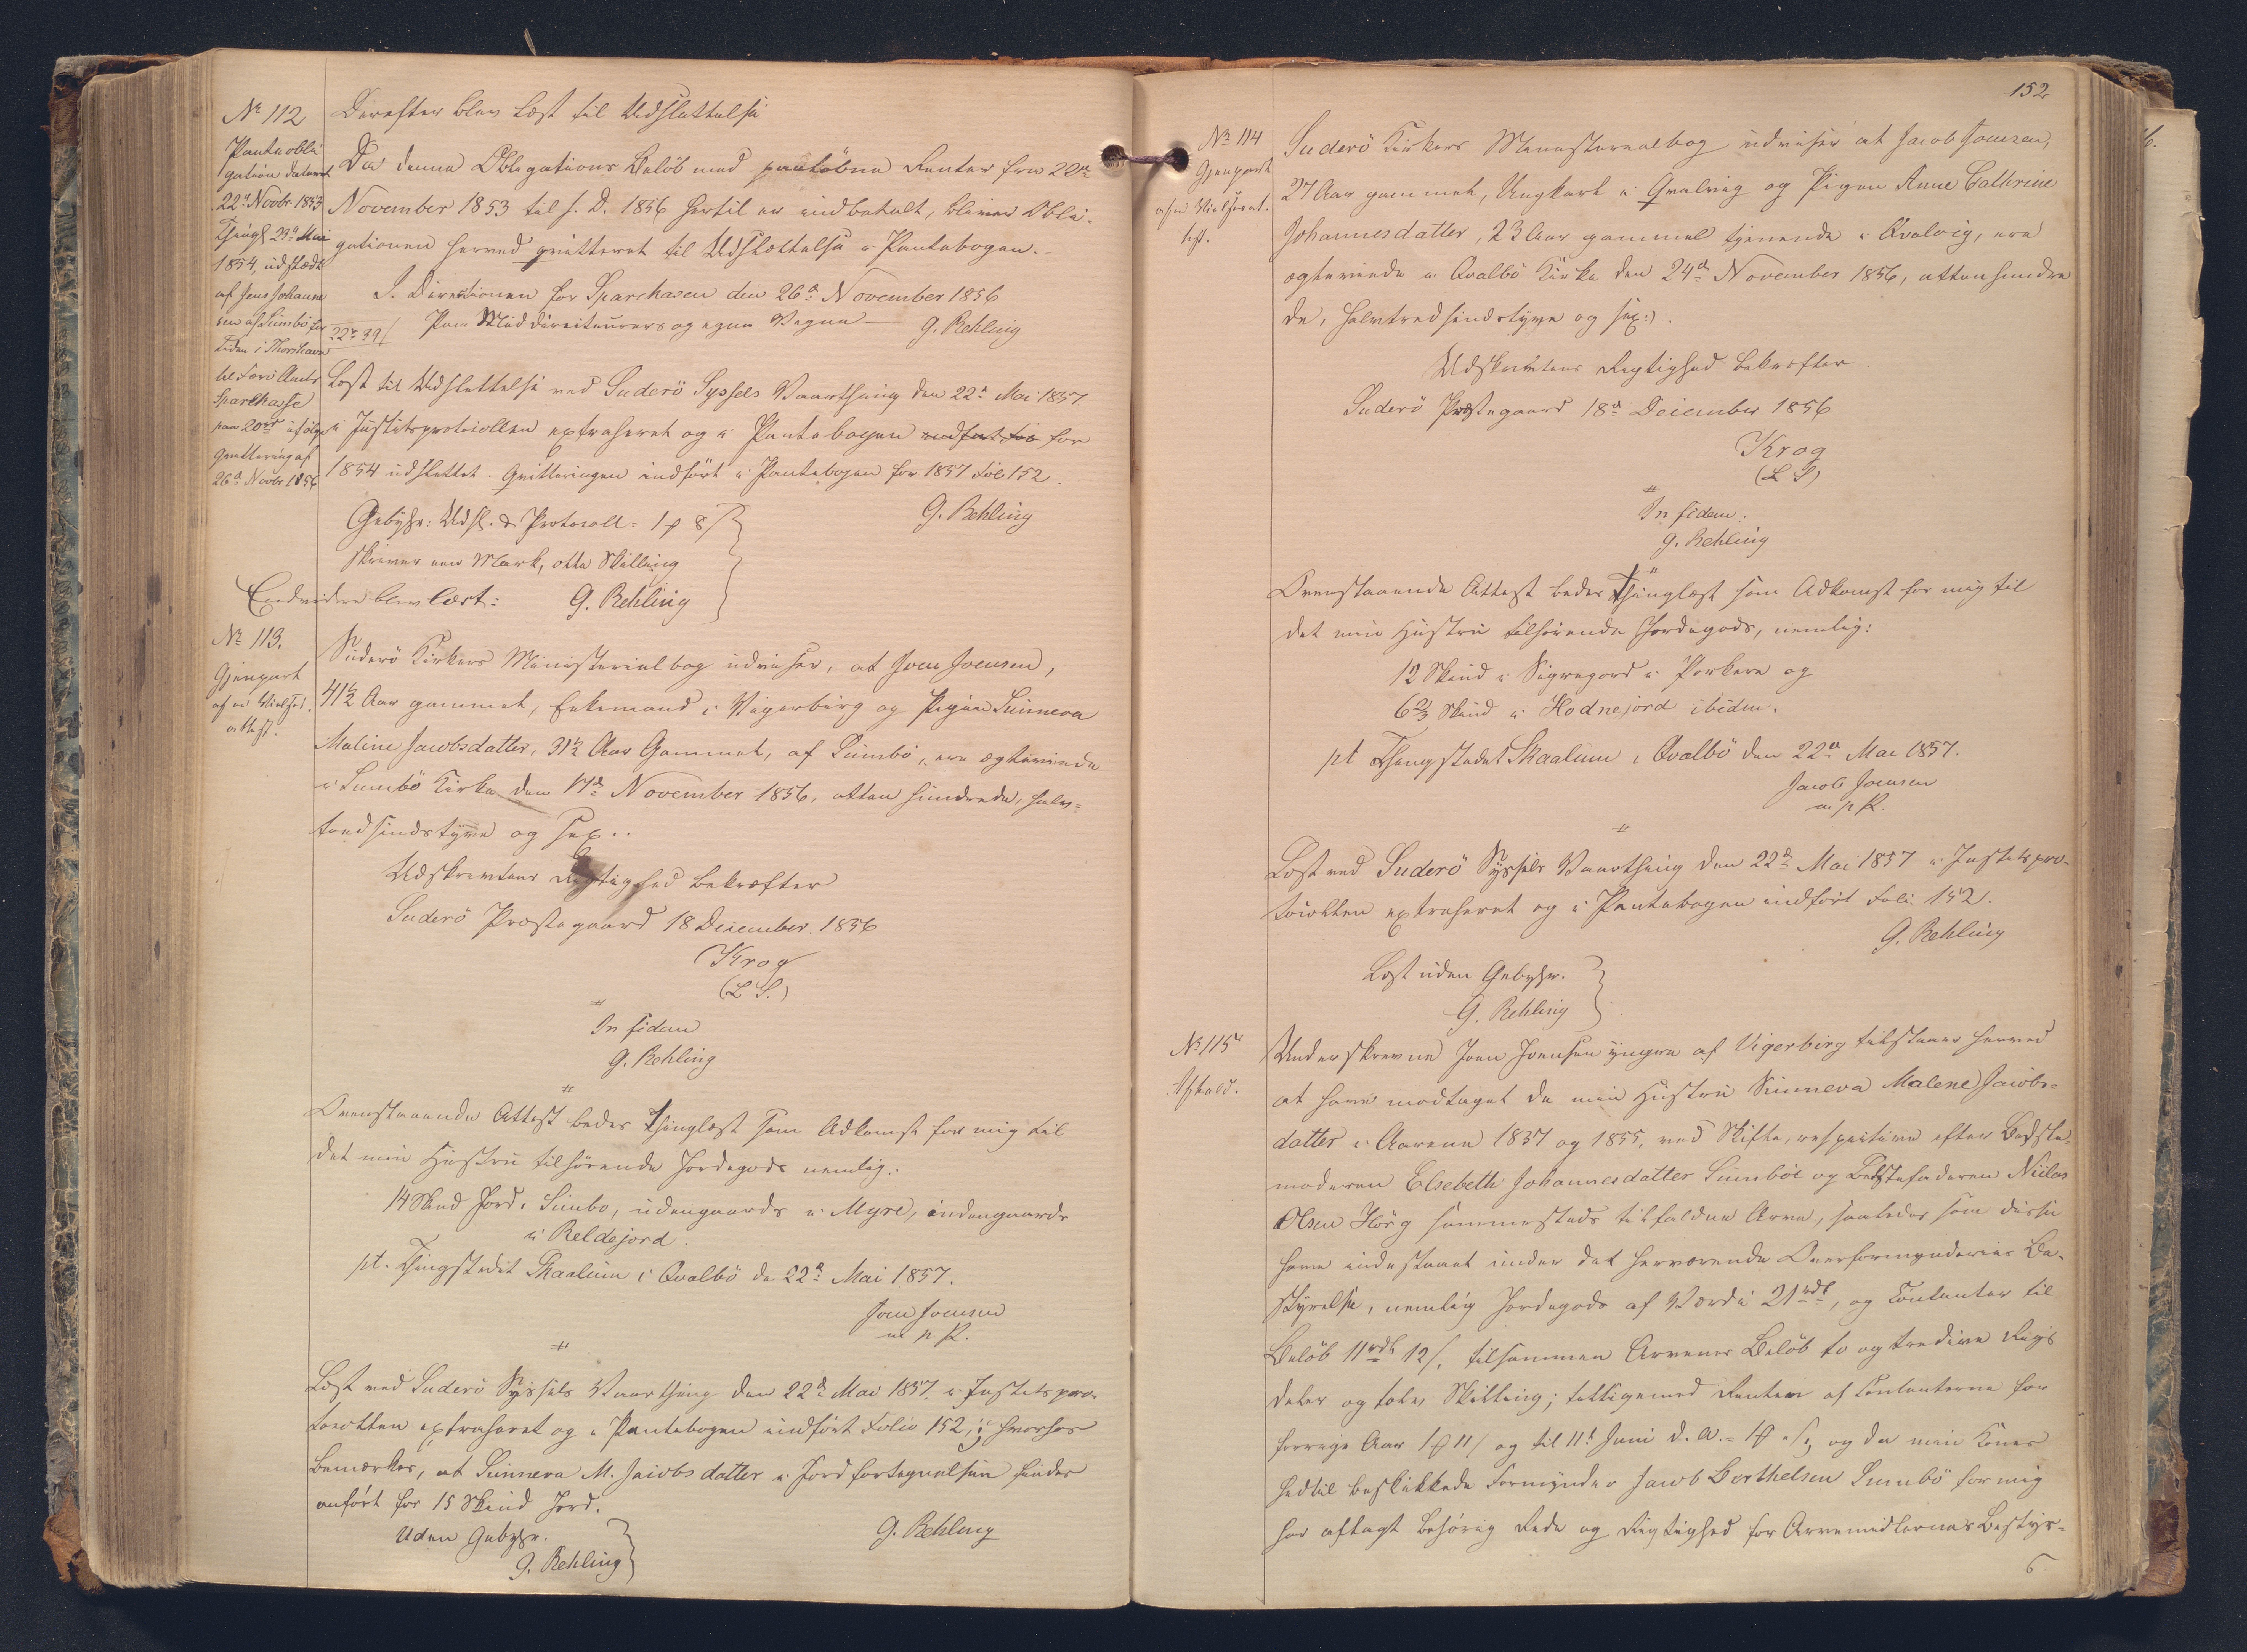 No 112
Panteobli
gation dateret
22d Novbr 1853
Thingl 23d Mai
1854, udstædt
af Jens Johanne
sen af Sumbö for
Tiden i Thorshavn
til Færö Amts
Sparekasse
paa 20rd ifølge
Qvittering af
26d Novbr 1856
Derefter blev læst til Udslettelse
Da denne Obligations Beløb med paaløbne Renter fra 22de
November 1853 til s. D. 1856 hertil er indbetalt, bliver Obli-
gationen herved qvitteret til Udslettelse i Pantebogen.-
I Directionen for Sparekassen den 26d November 1856
Paa Meddirecteurers og egne Vegne — G. Rehling
Læst til Udslettelse ved Suderö Syssels Vaarthing den 22d Mai 1857.
i Justitsprotocollen extraheret og i Pantebogen indført fol for
1854 udslettet. Qvitteringen indført i Pantebogen for 1857 Fol 152.
G. Rehling
Gebyhr: Udsl. & Protocoll = 1 ₰ 8 /
skriver een Mark, otte Skilling
G. Rehling
Endvidere blev læst:
No 113.
Gjenpart
af en Vielses-
attest.
Suderö Kirkers Ministerialbog udviser, at Joen Joensen,
41½ Aar gammel, Enkemand i Vigerbirg og Pigen Sunneva
Maline Jacobsdatter, 31½ Aar Gammel, af Sumbö, ere ægteviede
i Sumbö Kirke den 17d November 1856, atten hundrede, halv-
tredsindstyve og sex..
Udskrivtens Rigtighed bekræfter
Suderö Præstegaard 18 December 1856
Krog
(L. S.)
In fidem
G. Rehling
Ovenstaaende Attest bedes thinglæst som Adkomst for mig til
det min Hustru tilhørende Jordegods nemlig:
14 Skind Jord i Sumbo, udengaards i Myre, indengaards
i Reldejord.
pt. Thingstedet Skaalum i Qvalbö d. 22d Mai 1857.
Joen Joensen
m p P.
Læst ved Suderö Syssels Vaarthing den 22d Mai 1857. i Justitspro-
tocollen extraheret og i Pantebogen indført Folio 152, hvorhos
bemærkes, at Sunneva M. Jacobsdatter i Jordfortegnelsen findes
anført for 15 Skind Jord.
G. Rehling
Uden Gebyhr.
G. Rehling
152
No 114
Gjenpart
af en Vielsesat-
test.
Suderö Kirkers Ministerialbog udviser at Jacob Joensen,
27 Aar gammel, Ungkarl i Qvalvig og Pigen Anne Cathrine
Johannesdatter, 23 Aar gammel tjenende i Qvalvig, ere
ægteviede i Qvalbö Kirke den 24d November 1856, atten hundre
de, halvtredsindstyve og sex:).
Udskrivtens Rigtighed bekræfter
Suderö Præstegaard 18d December 1856
Krog
(L S)
In fidem.
G. Rehling
Ovenstaaende Attest bedes thinglæst som Adkomst for mig til
det min Hustru tilhørende Jordegods, nemlig:
12 Skind i Sigregord i Porkere og
6⅔ Skind i Hodnejord ibidem.
pt Thingstedet Skaalum i Qvalbö den 22d Mai 1857.
Jacob Joensen
m p P.
Læst ved Suderö Syssels Vaarthing den 22d Mai 1857 i Justitspro-
tocollen extraheret og i Pantebogen indført Foli 152.
G. Rehling
Læst uden Gebyhr.
G. Rehling
No 115
Afkald.
Underskrevne Joen Joensen yngre af Vigerbirg tilstaaer herved
at have modtaget de min Hustru Sunneva Malene Jacobs-
datter i Aarene 1837 og 1855, ved Skifte, respective efter Bedste-
moderen Elsebeth Johannesdatter Sumböe og Bedstefaderen Niclas
Olsen Hörg sammesteds tilfaldne Arve, saaledes som disse
have indestaaet under det herværende Overformynderies Be-
styrelse, nemlig Jordegods af Værdi 21rdl, og Contanter til
Beløb 11rdl 12/, tilsammen Arvenes Beløb to og tredive Rigs
daler og tolv Skilling; tilligemed Renten af Contanterne for
forrige Aar 1 ₰ 11/ og til 11t Juni d. A. = 1 ₰ og da min Kones
hidtil beskikkede Formynder Jacob Berthelsen Sumbö for mig
har aflagt behørig Rede og Rigtighed for Arvemidlernes Bestyr-